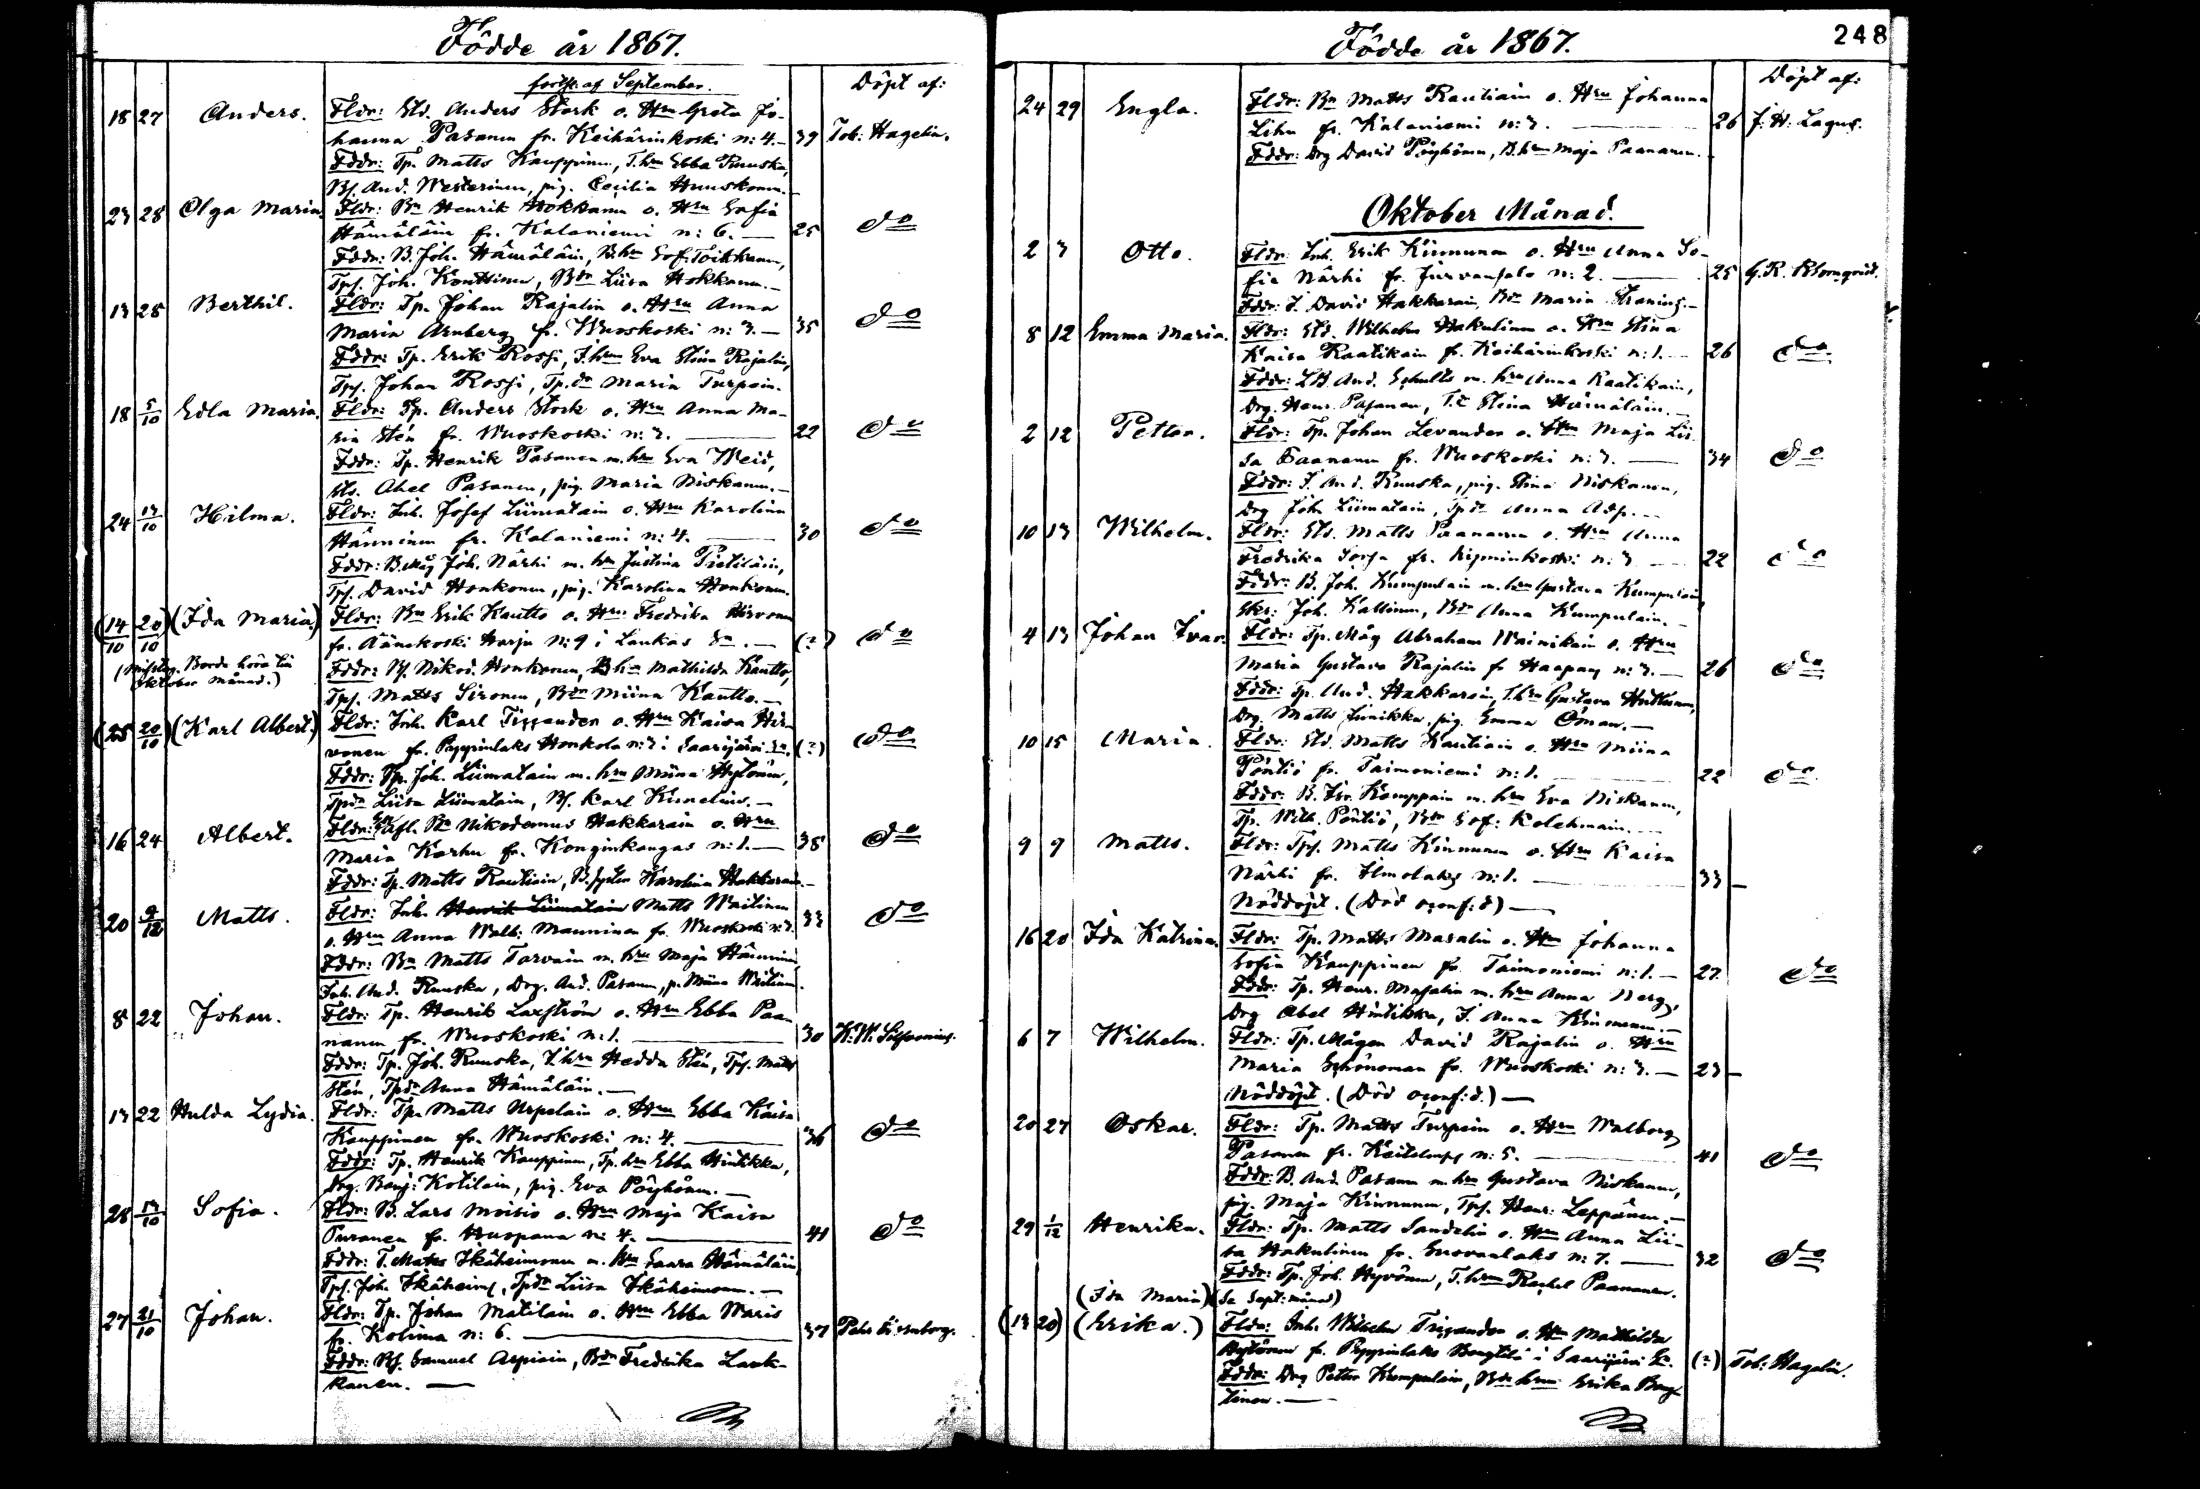 Födde år 1867.
forts. af September.
Döpt af:
18 27 Anders. Fldr: Std. Anders Stark o. Hru Greta Jo-
hanna Pasanen fr. Keihärinkoski n: 4. 39 Tob. Hagelin.
Fddr: Tp. Matts Kauppinen, T.hru Ebba Ruuska,
And. Westerinen, pig. Cecilia
23 28 Olga Maria. Fldr: Bn Henrik Hokkanen o. Hru Sofia
Hämäläin fr. Kalaniemi n: 6. 25 do
Fddr: B. Joh. Hämäläin, B.hru Sof. Toikkanen,
Tps. Joh. Konttinen, Bdr Liisa Hokkanen.
13 28 Berthil. Fldr: Tp. Johan Rajalin o. Hru Anna
Maria Arnberg fr. Wuoskoski n: 3. 35 do
Fddr: Tp. Erik Rossi, T.hru Eva Stina Rajalin,
Tps. Johan Rossi, Tp.dr Maria Turpein.
18 5/10 Edla Maria. Fldr: Tp. Anders Stork o. Hru Anna Ma-
ria Stén fr. Wuoskoski n: 3. 22 do
Fddr: Tp. Henrik Pasanen m. hru Eva Weid,
Abel Pasanen, pig. Maria Niskanen.
24 13/10 Hilma. Fldr: Inh. Josef Liimatain o. Hru Karolina
Hänninen fr. Kalaniemi n: 4. 30 do
Fddr: B.måg Joh. Närhi m. hru Justina Pietiläin,
Tps. David Honkonen, pig. Karolina Honkonen.
(14/10 20/10) (Ida Maria.) Fldr: Bn Erik Kautto o. Hru Fredrika Hirvonen
fr. Äänekoski Harju n: 9 i Laukas Sn. (?) do
(Misstag. Borde höra till
Oktober månad.)
Fddr: Bs. Nikod. Honkonen, B hru Mathilda Kautto,
Tps. Matts Sironen, Bdr Miina Kautto.
(25 20/10) (Karl Albert.) Fldr: Inh. Karl Tizzander o. Hru Kaisa Hir-
vonen fr. Pyppinlaks Honkola n: 3 i Saarijärvi Sn. (?) do
Fddr: Tp. Joh. Liimatain m. hru Miina Hytönen,
Tpdr Liisa Liimatain, Bs. Karl Kinelius.
16 24 Albert. Fldr: Bn Nikodemus Hakkarain o. Hru
Maria Korhu fr. Konginkangas n: 1. 38 do
Fddr: Tp. Matts Rautiain, Karolina Hakkarain.
20 9/12 Matts. Fldr: Inh. Henrik Liimatain Matts Waitinen
o. Hru Anna Walb: Manninen fr. Wuoskoski n: 3. 33 do
Fddr: Bn Matts Tarvain m. hru Maja Hänninen
Inh. And. Ruuska, Drg. And. Pasanen, p. Miina Waitinen.
8 22 Johan. Fldr: Tp. Henrik Laxström o. Hru Ebba Paa-
nanen fr. Wuoskoski n: 1. 30 K. W. Silfvenius.
Fddr: Tp. Joh. Ruuska, T.hru Hedda Stén, Tps. Matts
Stén, Tpdr Anna Hämäläin.
13 22 Hulda Lydia. Fldr: Tp. Matts Urpelain o. Hru Ebba Kaisa
Kauppinen fr. Wuoskoski n: 4. 36 do
Fddr: Tp. Henrik Kauppinen, Tp. hru Ebba Hintikka,
Drg. Benj: Kotilain, pig. Eva Pöyhönen.
28 13/10 Sofia. Fldr: B. Lars Moisio o. Hru Maja Kaisa
Puranen fr. Huopana n: 4. 41 do
Fddr: T. Matts Ikäheimonen m. hru Saara Hämäläin
Tps. Joh. Ikäheim, Tpdr Liisa Ikäheimonen.
27 21/10 Johan. Fldr: Tp. Johan Matilain o. Hru Ebba Waris
fr. Kolima n: 6. 37
Fddr: Bs. Samuel Arpiain, Bdr Fredrika Lauk-
kanen.
Födde år 1867. 248
Döpt af:
24 29 Engla. Fldr: Bn Matts Rautiain o. Hru Johanna
Lihu fr. Kalaniemi n: 3. 26 J. H. Lagus.
Fddr: Drg David Pöyhönen, B.hru Maja Paananen.
Oktober Månad.
2 3 Otto. Fldr: Inh. Erik Kinnunen o. Hru Anna So-
fia Närhi fr. Jurvansalo n: 2. 25 G. R. Blomqvist.
Fddr: I. David Hakkarain, Bdr Maria Straning.
8 12 Emma Maria. Fldr: Std. Wilhelm Hakulinen o. Hru Stina
Kaisa Raatikain fr. Keihärinkoski n: 1. 26 do
Fddr: LB And. Schults m. hru Anna Raatikain,
Drg. Henr. Pasanen, T.d. Stina Hämäläin.
2 12 Petter. Fldr: Tp. Johan Levander o. Hru Maja Lii-
sa Paananen fr. Wuoskoski n: 3. 34 do
Fddr: I. And. Ruuska, pig. Stina Niskanen,
Drg Joh. Liimatain, Tpdr Anna Asp.
10 13 Wilhelm. Fldr: Std. Matts Paananen o. Hru Anna
Fredrika Sorsa fr. Kyminkoski n: 3 22 do
Fddr: B. Joh. Kumpulain m. hru Gustava Kumpulain,
Skr: Joh. Kallinen, Bdr Anna Kumpulain.
4 13 Johan Ivar. Fldr: Tp. Måg Abraham Wainikain o. Hru
Maria Gustava Rajalin fr Haapan n: 3. 26 do
Fddr: Tp. And. Hakkarain, T.hru Gustava Huttunen,
Drg. Matts Junikka, pig. Emma Öman.
10 15 Maria. Fldr: Std. Matts Rautiain o. Hru Miina
Pöntiö fr. Taimoniemi n: 1. 22 do
Fddr: B. Isr. Komppain m. hru Eva Niskanen,
Tp. Wilh. Pöntiö, Bdr Sof: Kolehmain.
9 9 Matts. Fldr: Tps. Matts Kinnunen o. Hru Kaisa
Närhi fr. Ilmolaks n: 1. 33
Nöddöpt. (Död oconf:d)
16 20 Ida Katrina. Fldr: Tp. Matts Masalin o. Hru Johanna
Sofia Kauppinen fr. Taimoniemi n: 1. 27 do
Fddr: Tp. Henr. Masalin m. hru Anna Nerg,
Drg Abel Hintikka, I. Anna Kinnunen.
6 7 Wilhelm. Fldr: Tp. Mågen David Rajalin o. Hru
Maria Schöneman fr. Wuoskoski n: 3. 23
Nöddöpt. (Död oconf:d.)
20 27 Oskar. Fldr: Tp. Matts Turpein o. Hru Walborg
Pasanen fr. n: 5. 41 do
Fddr: B. And. Pasanen m. hru Gustava Niskanen,
pig. Maja Kinnunen, Tps. Henr: Leppänen.
29 1/12 Henrika. Fldr: Tp. Matts Sandelin o. Hru Anna Lii-
sa Hakulinen fr. Suovanlaks n: 7. 32 do
Fddr: Tp. Joh. Hyvönen, T.hru Rachel Paananen.
(Ida Maria) (Se Sept: månad)
(13 20) (Erika.) Fldr: Inh. Wilhelm Tizzander o. Hru Mathilda
Hytönen fr. Pyppinlaks Bengtilä i Saarijärvi Sn. (?) Tob: Hagelin.
Fddr: Drg Petter Kumpulain, Bdr hru: Erika
tinen.